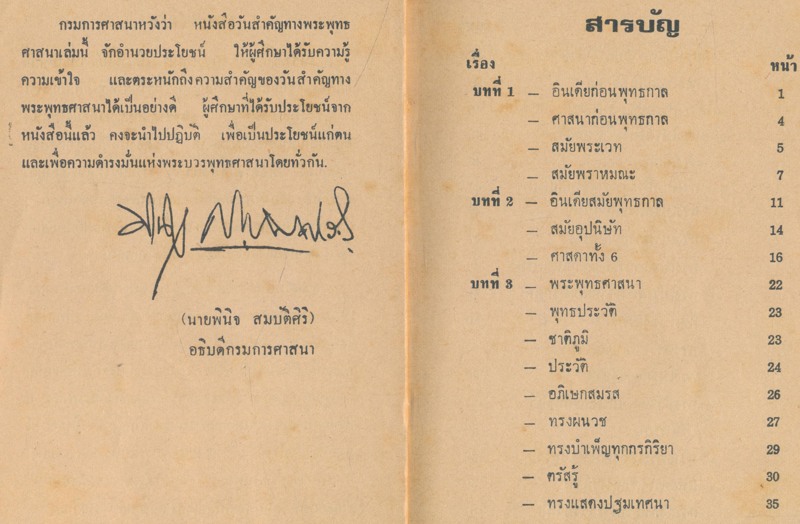 กรมการศาสนาหวังว่า หนังสือวันสำคัญทางพระพุทธ
ศาสนาเล่มนี้ จักอำนวยประโยชน์ ให้ผู้ศึกษาได้รับความรู้
ความเข้าใจ และตระหนักถึงความสำคัญของวันสำคัญทาง
พระพุทธศาสนาได้เป็นอย่างดี ผู้ศึกษาที่ได้รับประโยชน์จาก
หนังสือนี้แล้ว คงจะนำไปปฏิบัติ เพื่อเป็นประโยชน์แก่ตน
และเพื่อความดำรงมั่นแห่งพระบวรพุทธศาสนาโดยทั่วกัน.
(นายพินิจ สมบัติศิริ)
อธิบดีกรมการศาสนา
สารบัญ
เรื่อง หน้า
บทที่ 1 – อินเดียก่อนพุทธกาล 1
– ศาสนาก่อนพุทธกาล 4
– สมัยพระเวท 5
– สมัยพราหมณะ 7
บทที่ 2 – อินเดียสมัยพุทธกาล 11
– สมัยอุปนิษัท 14
– ศาสดาทั้ง 6 16
บทที่ 3 – พระพุทธศาสนา 22
– พุทธประวัติ 23
– ชาติภูมิ 23
– ประวัติ 24
– อภิเษกสมรส 26
– ทรงผนวช 27
– ทรงบำเพ็ญทุกกรกิริยา 29
– ตรัสรู้ 30
– ทรงแสดงปฐมเทศนา 35